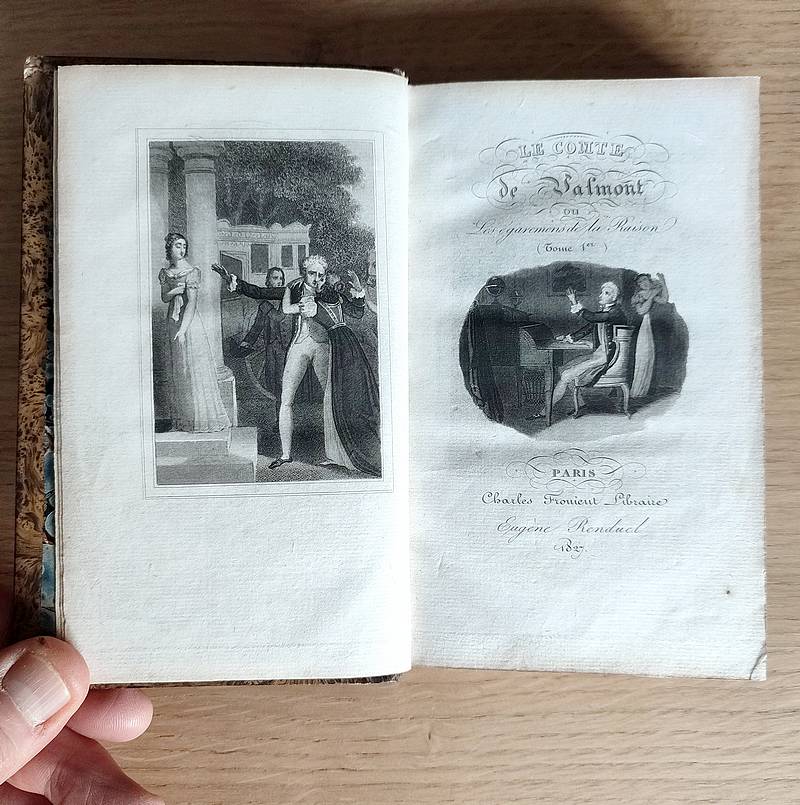 LE COMTE
de Valmont
OU
Les égaremens de la Raison
(Tome 1er)
PARIS
Charles Froment Libraire
Eugène Renduel
1827.